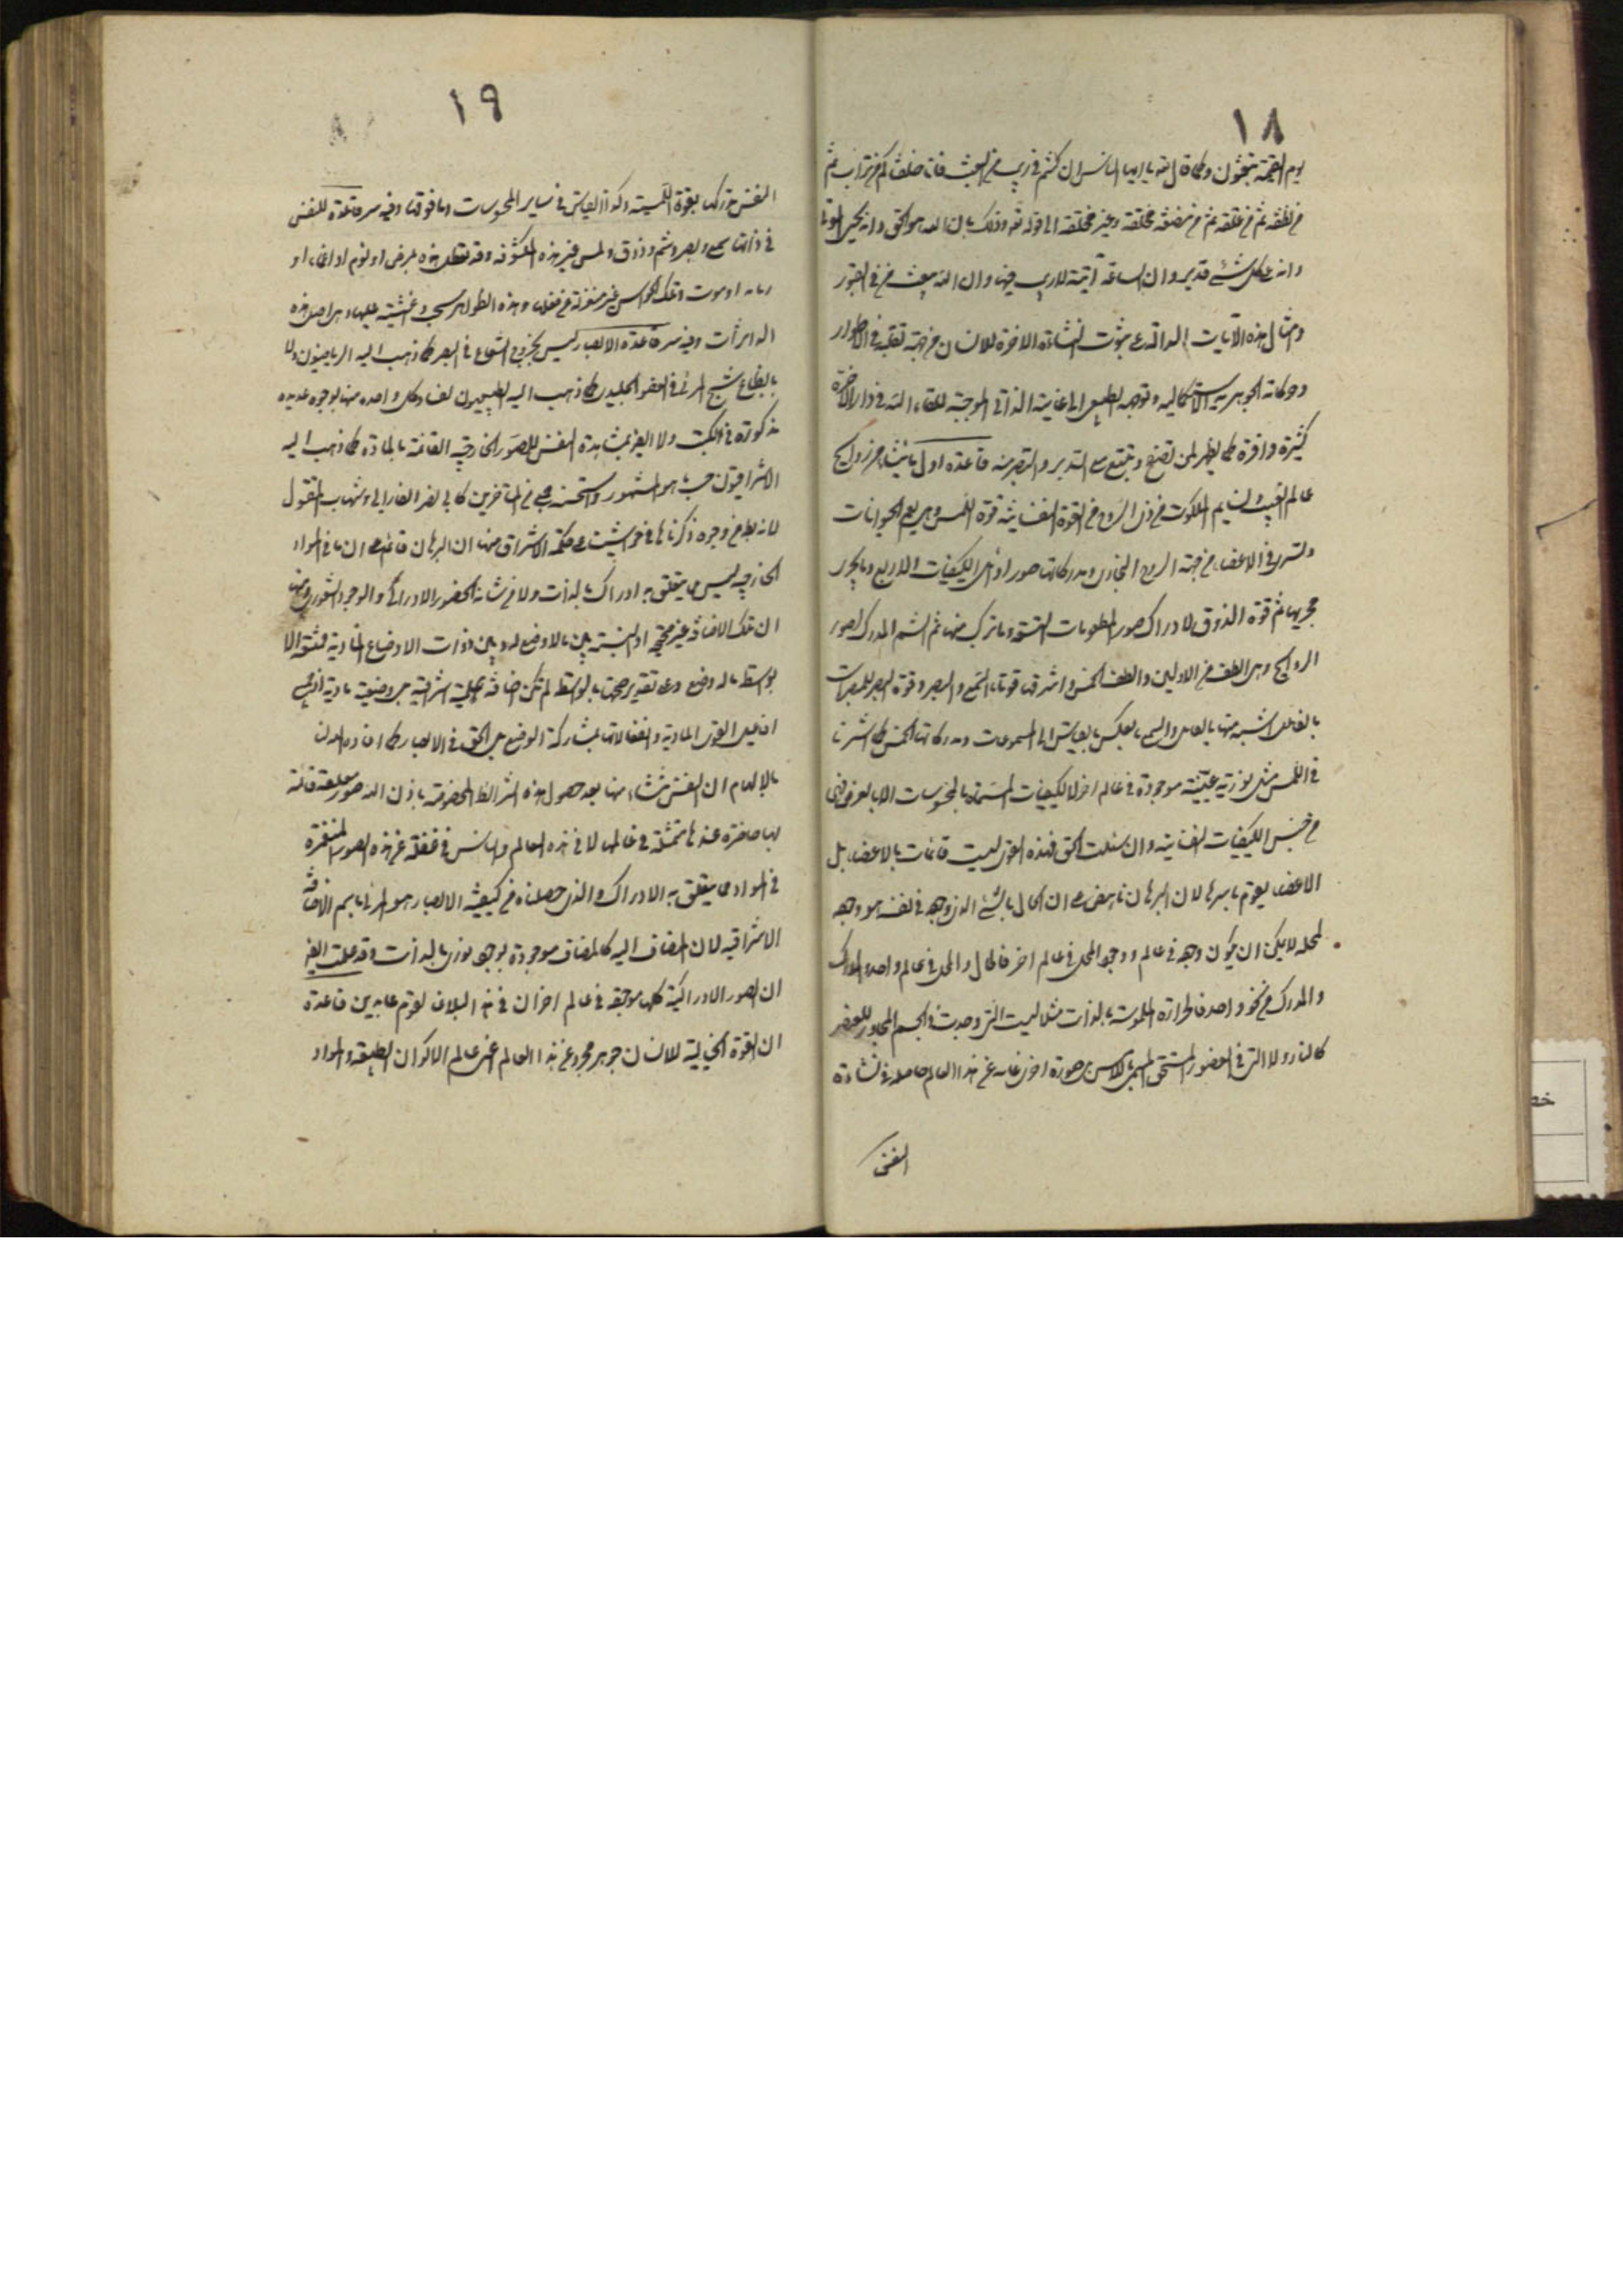 ١٨
يوم القيمة تبعثون وكما قال تعه يا ايها الناس ان كنتم في ريب من البعث فانا خلقناكم من تراب ثم
من نطفة ثم من علقة ثم من مضغة مخلقة وغير مخلقة الى قوله تعه وذلك بان الله هو الحق وانه يحيى الموتى
وانه على كل شئ قدير وان الساعة آتية لا ريب فيها وان الله يبعث من في القبور
وامثال هذه الآيات الدالة على ثبوت النشاءة الاخرة للانسان من جهة تقلبه في الاطوار
وحركاته الجوهرية الاستكمالية وتوجهه الطبيعى الى غايته الذاتى الموجبة للقاء الله في دار الاخرة
كثيرة وافرة كما يظهر لمن تصفح وتتبع مع التدبر والتبصر منه قاعدة اول ما ينشاء من روايح
عالم الغيب ونسايم الملكوت في ذى الروح من القوة النفسانية قوة اللمس وهى يعم الحيوانات
وتسرى في الاعضاء من جهة الروح البخارى ومدركاتها صور اوائل الكيفيات الاربع وما يجرى
مجريها ثم قوة الذوق لادراك صور المطعومات التسعة وما تركب منها ثم الشم المدرك لصور
الروايح وهى الطف من الاولين والطف الخمس واشرفها قوتا السمع والبصر وقوة البصر للمبصرات
بالفاعل اشبه منها بالقابل والسمع بالعكس بالقياس الى المسموعات ومدركات الخمس كما اشرنا
في اللمس مثل نورية عينية موجودة في عالم اخر لا الكيفيات المسماة بالمحسوسات الا بالعرض فهى
من جنس الكيفيات النفسانية وان سئلت الحق فهذه القوى ليست قائمات بالاعضاء بل
الاعضاء يقوم باسرها لان البرهان ناهض على ان الحال بالشئ الذى وجوده في نفسه هو وجوده
لمحله لا يمكن ان يكون وجوده في عالم ووجود المحل في عالم اخر فالحال والمحل في عالم واحد والمدرك
والمدرك من نحو واحد فالحرارة الملموسة بالذات مثلا ليست التى وجدت في الجسم المجاور للعضو
كالنار ولا التى في العضو المستحق المسمى باللامس بل صورة اخرى غائبه عن هذا العالم حاصلة في نشاءة
النفس
١٩
النفس تدركها بقوة اللمسية وكذا القياس في ساير المحسوسات وما فوقها وفيه سر قاعدة للنفس
في ذاتها سمع وبصر وشم وذوق ولمس غير هذه المكشوفة وقد تعطل هذه بمرض او نوم او اغماء او
زمانة او موت وتلك الحواس غير منعزلة عن فعلها وهذه الظواهر حجب واغشية عليها وهى اصل هذه
الداثرات وفيه سر قاعدة الابصار ليس بخروج الشعاع في البصر كما ذهب اليه الرياضيون ولا
بانطباع شبح المرئى في العضو الجليدى كما ذهب اليه الطبيعيون لفساد كل واحد منها بوجوه عديده
مذكورة في الكتب ولا ايضا بمشاهدة النفس للصور الخارجية القائمة بالمادة كما ذهب اليه
الاشراقيون حسبما هو المشهور واستحسنه جمع من المتاخرين كابى نصر الفارابى وشهاب المقتول
لانه باطل من وجوه ذكرناها في حواشينا على حكمة الاشراق منها ان البرهان قائم على ان ما في المواد
الخارجيه ليس مما يتعلق به ادراك بالذات ولا من شانه الحضور الادراكى والوجود الشعورى ومنها
ان تلك الاضافة غير صحيحة اذ النسبة بين ما لا وضع له وبين ذوات الاوضاع المادية ممتنعة الا
بواسطة ما له وضع وعلى تقدير صحتها بالواسطة لم تكن اضافة علمية اشراقية بل وضعية مادية اذ جميع
افاعيل القوى المادية وانفعالاتها بمشاركة الوضع بل الحق في الابصار كما افاده الله لنا
بالالهام ان النفس تنشاء منها بعد حصول هذه الشرائط المخصوصة باذن الله صور معلقة قائمة
بها حاضرة عندها متمثلة في عالمها لا في هذه العالم والناس في غفلة عن هذه الصور المنغمرة
في المواد مما يتعلق به الادراك والذى حصلناه في كيفية الابصار هو احرى باسم الاضافة
الاشراقية لان المضاف اليه كالمضاف موجودة بوجود نورى بالذات وقد علمت ايضا
ان الصور الادراكية كلها موجودة في عالم اخر ان في هذا لبلاغا لقوم عابدين قاعدة
ان القوة الخيالية للانسان جوهر مجرد عن هذا العالم اعنى عالم الاكوان الطبيعية والمواد